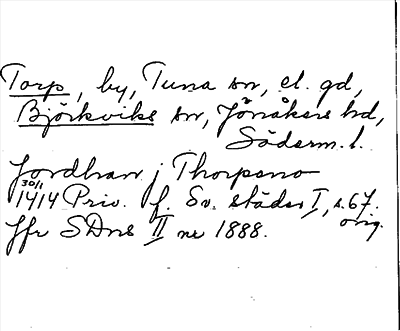 Torp, by, Tuna sn, el. gd,
Björkviks sn, Jönåkers hd,
Söderm. l.
Jordhan j Thorpeno
30/1
1414 Priv. f. Sv. städer I, s. 67.
orig.
Jfr SDns II nr 1888.